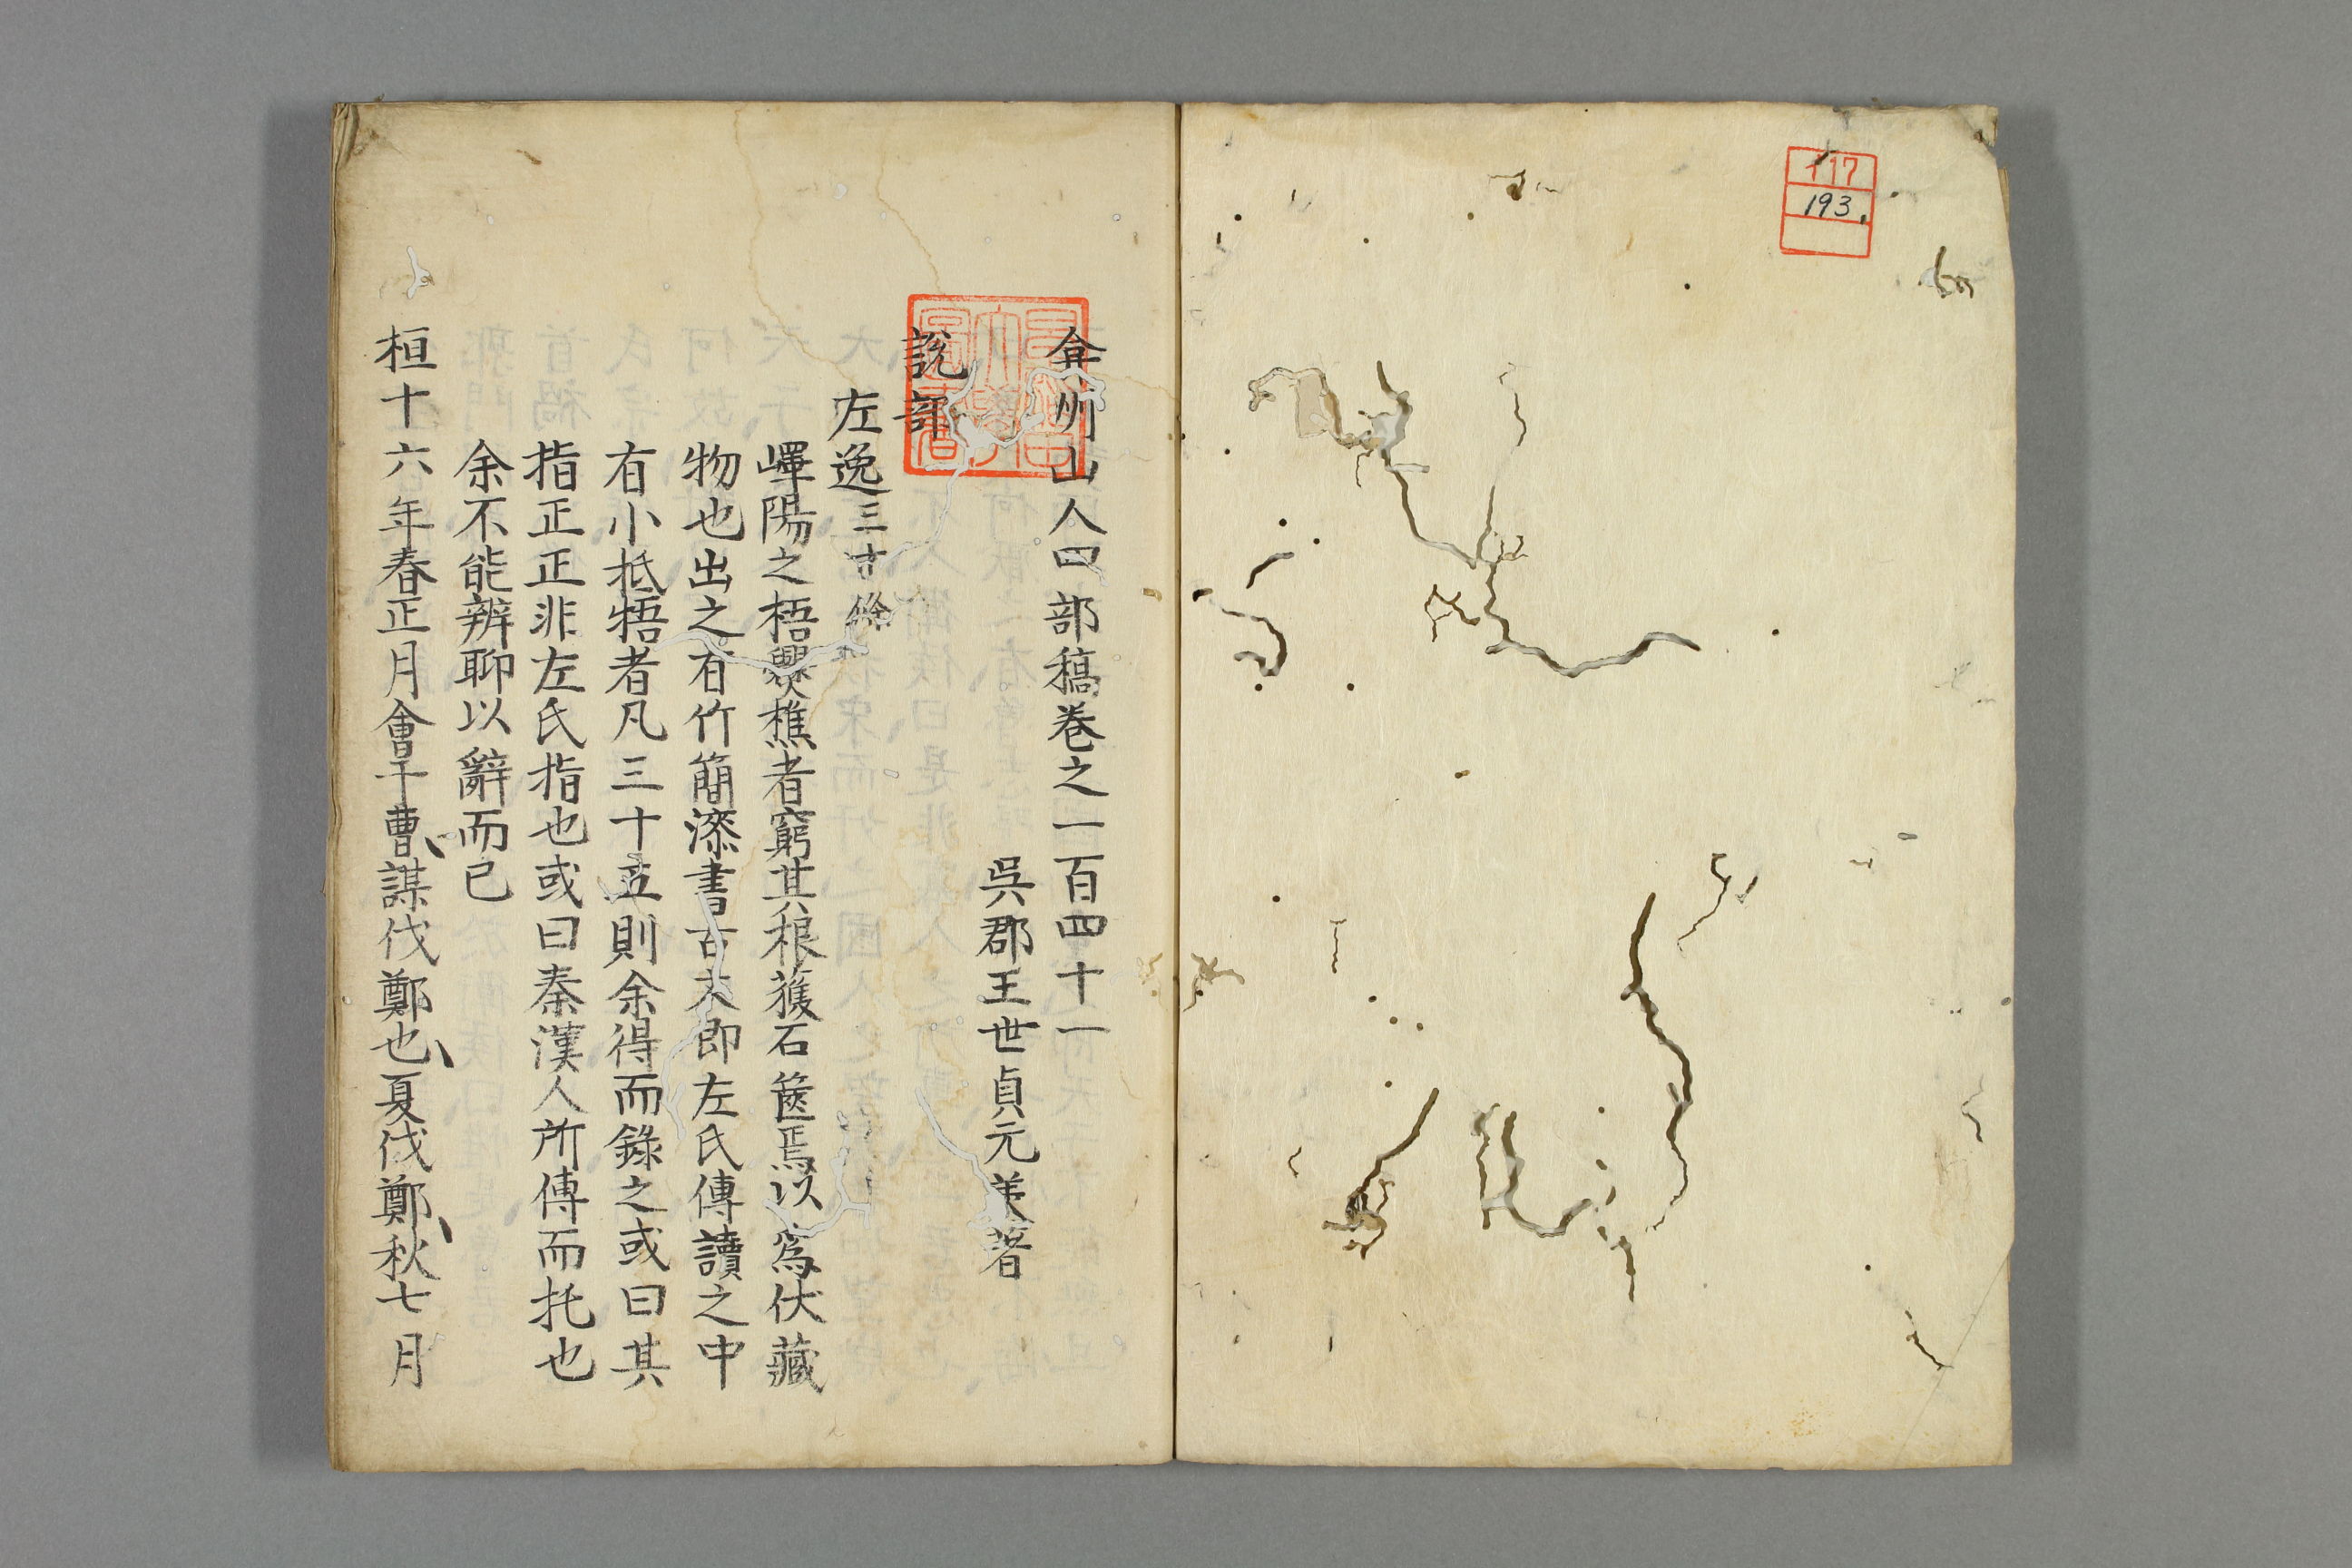 117
193.
弇州山人四部稿巻之一百四十一
吳郡王世貞元美著
說部
左逸三十餘
嶧陽之梧爨樵者窮其根獲石篋焉以爲伏藏
物也出之有竹簡漆書古文即左氏傳讀之中
有小抵牾者凡三十五則余得而錄之或曰其
指正正非左氏指也或曰秦漢人所傅而托也
余不能辨聊以辭而已
桓十六年春正月會于曹、謀伐鄭也、夏伐鄭、秋七月